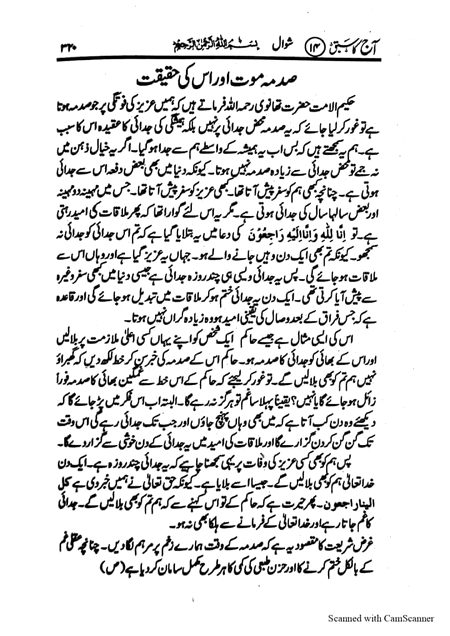 آج کا سبق ۱۴ شوال بسم اللہ الرحمٰن الرحیم ۳۲۰
صدمہ موت اور اس کی حقیقت
حکیم الامت حضرت تھانوی رحمہ اللہ فرماتے ہیں کہ ہمیں عزیز کی فوتگی پر جو صدمہ ہوتا
ہے تو غور کر لیا جائے کہ یہ صدمہ محض جدائی پر نہیں بلکہ ہمیشگی کی جدائی کا عقیدہ اس کا سبب
ہے۔ ہم یہ سمجھتے ہیں کہ بس اب یہ ہمیشہ کے واسطے ہم سے جدا ہو گیا۔ اگر یہ خیال ذہن میں
نہ جمے تو محض جدائی سے زیادہ صدمہ نہیں ہوتا۔ کیونکہ دنیا میں بھی بعض دفعہ اس سے جدائی
ہوتی ہے۔ چنانچہ کبھی ہم کو سفر پیش آتا تھا۔ کبھی عزیز کو سفر پیش آتا تھا۔ جس میں مہینہ دو مہینہ
اور بعض سالہا سال کی جدائی ہوتی ہے۔ مگر یہ اس لئے گوارا تھا کہ پھر ملاقات کی امید رہتی
ہے۔ تو اِنَّا لِلّٰهِ وَاِنَّا اِلَيْهِ رَاجِعُوْنَ کی دعا میں یہ بتلایا گیا ہے کہ تم اس جدائی کو جدائی نہ
سمجھو۔ کیونکہ تم بھی ایک دن وہیں جانے والے ہو۔ جہاں یہ عزیز گیا ہے اور وہاں اس سے
ملاقات ہو جائے گی۔ پس یہ جدائی ویسی ہی چند روزہ جدائی ہے جیسی دنیا میں کبھی سفر وغیرہ
سے پیش آیا کرتی تھی۔ ایک دن یہ جدائی ختم ہو کر ملاقات میں تبدیل ہو جائے گی اور قاعدہ
ہے کہ جس فراق کے بعد وصال کی یقینی امید ہو وہ زیادہ گراں نہیں ہوتا۔
اس کی ایسی مثال ہے جیسے حاکم ایک شخص کو اپنے یہاں کسی اعلیٰ ملازمت پر بلا لیں
اور اس کے بھائی کو جدائی کا صدمہ ہو۔ حاکم اس کے صدمہ کی خبر سن کر خط لکھ دیں کہ گھبراؤ
نہیں ہم تم کو بھی بلا لیں گے۔ تو غور کر لیجئے کہ حاکم کے اس خط سے غمگین بھائی کا صدمہ فوراً
زائل ہو جائے گا یا نہیں؟ یقیناً پہلا سا غم تو ہرگز نہ رہے گا۔ البتہ اب اس فکر میں پڑ جائے گا کہ
دیکھئے وہ دن کب آتا ہے کہ میں بھی وہاں پہنچ جاؤں اور جب تک جدائی رہے گی اس وقت
تک گن گن کر دن گزارے گا اور ملاقات کی امید میں یہ جدائی کے دن خوشی سے گزار دے گا۔
پس ہم کو بھی کسی عزیز کی وفات پر یہی سمجھنا چاہیے کہ یہ جدائی چند روزہ ہے۔ ایک دن
خدا تعالیٰ ہم کو بھی بلا لیں گے۔ جیسا اسے بلایا ہے۔ کیونکہ حق تعالیٰ نے ہمیں خبر دی ہے کل
الینا راجعون۔ پھر حیرت ہے کہ حاکم کے تو اس کہنے سے کہ ہم تم کو بھی بلا لیں گے۔ جدائی
کا غم جاتا رہے اور خدا تعالیٰ کے فرمانے سے ہلکا بھی نہ ہو۔
غرض شریعت کا مقصود یہ ہے کہ صدمہ کے وقت ہمارے زخم پر مرہم لگا دیں۔ چنانچہ عقلی غم
کے بالکل ختم کرنے کا اور حزن طبعی کی کمی کا ہر طرح مکمل سامان کر دیا ہے (ص)
Scanned with CamScanner